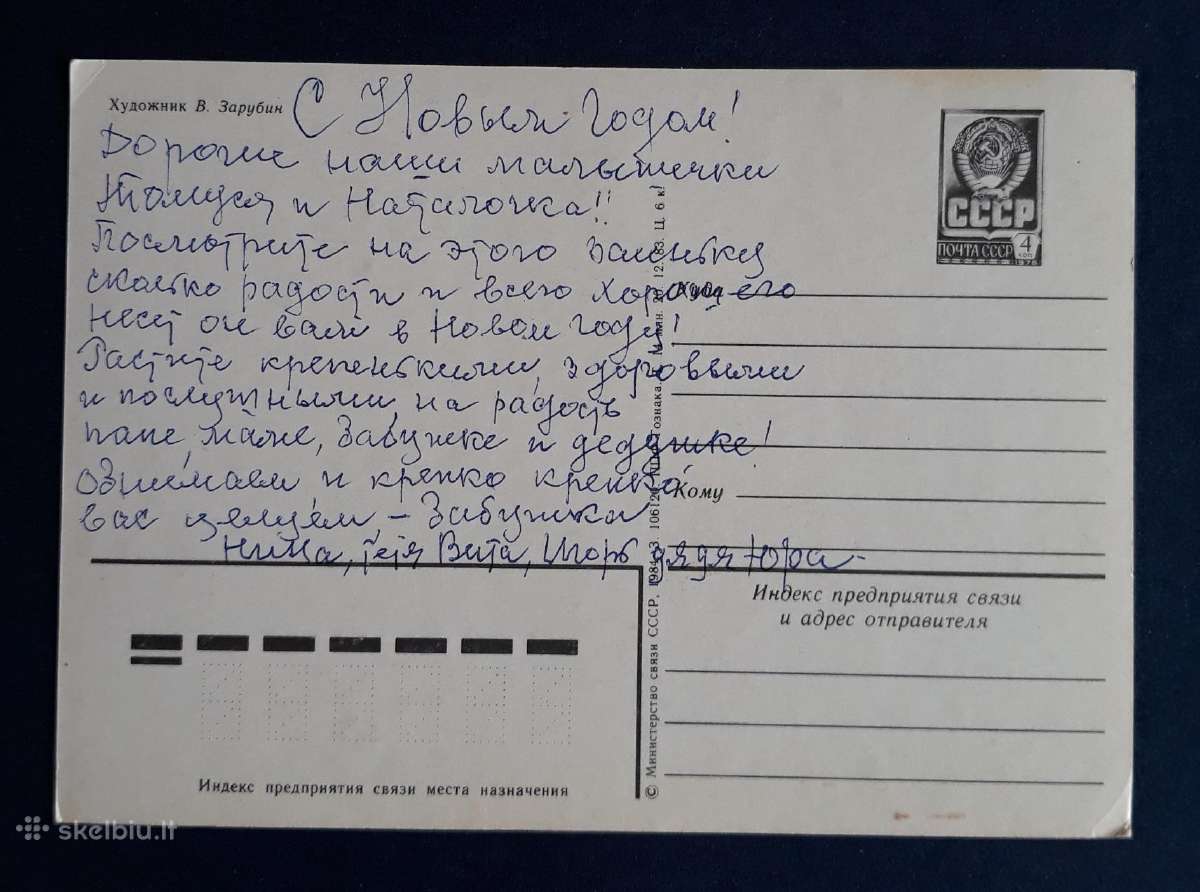 Художник В. Зарубин
С Новым Годом!
Дорогие наши малышечки
Томуся и Наталочка!!
Посмотрите на этого Заиньку
сколько радости и всего хорошего
несёт он вам в Новом году!
Растите крепенькими, здоровыми
и послушными, на радость
папе, маме, Бабушке и дедушке!
Обнимаем и крепко крепко
вас целуем, – Бабушка
Нина, тётя Вита, Игорь дядя Юра –
СССР
ПОЧТА СССР 4 КОП
1978
Куда
Кому
Индекс предприятия связи
и адрес отправителя
Индекс предприятия связи места назначения
© Министерство связи СССР, 1984. З. 106124. Гознака. 12. 83. Ц. 6 к.
skelbiu.lt